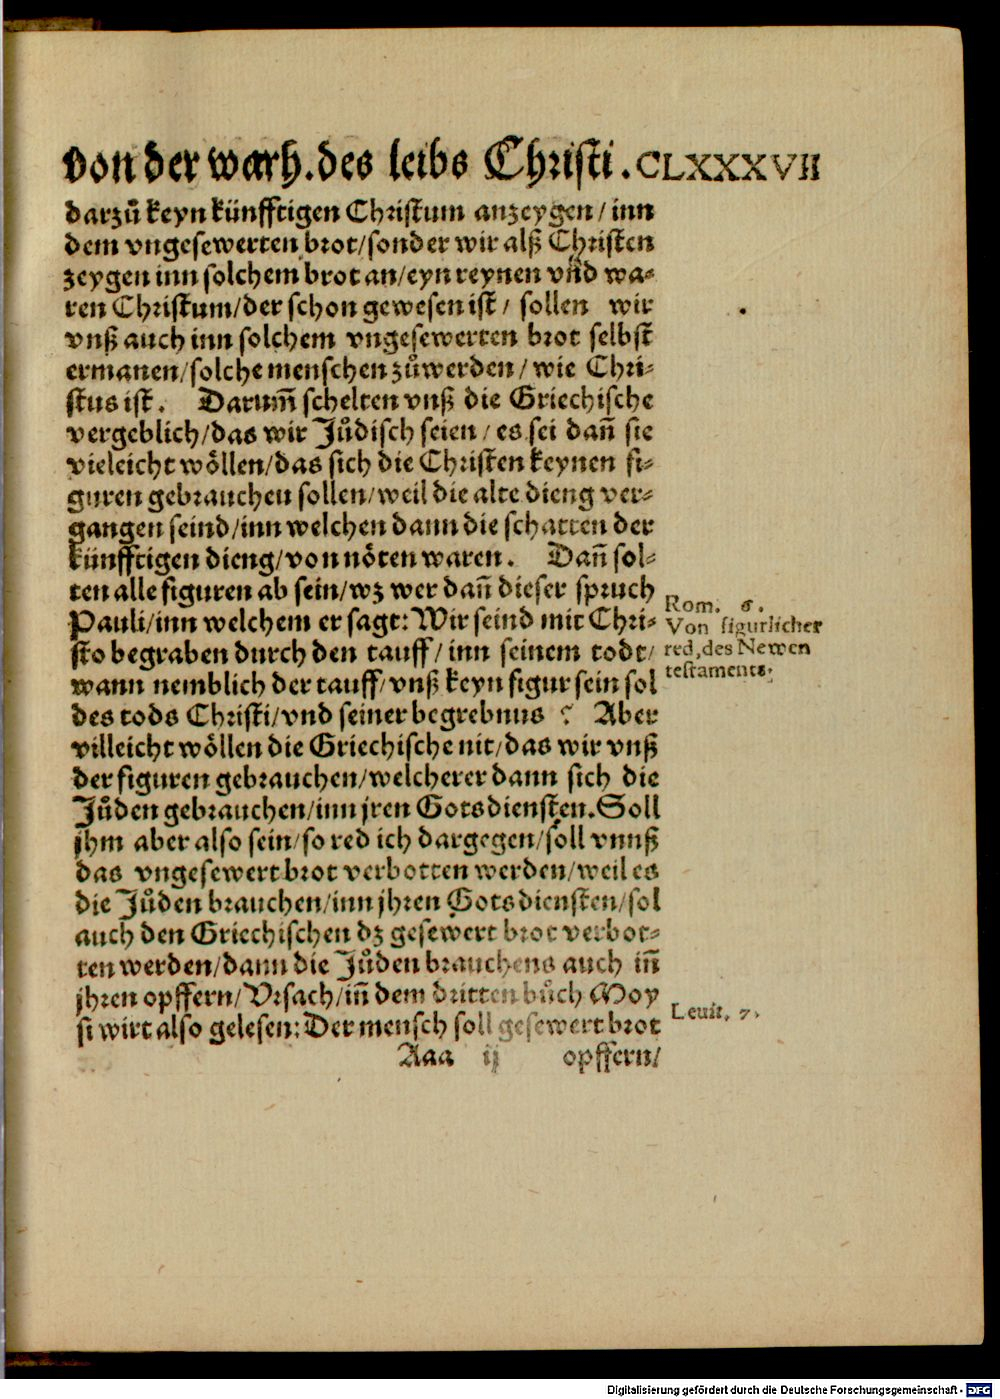 von der warh. des leibs Christi. CLXXXVII
darzů keyn künfftigen Christum anzeygen/ inn
dem vngesewerten brot/ sonder wir alß Christen
zeygen inn solchem brot an/ eyn reynen vnd wa⸗
ren Christum/ der schon gewesen ist/ sollen wir
vnß auch inn solchem vngesewerten brot selbst
ermanen/ solche menschen zůwerden/ wie Chri⸗
stus ist. Darum̃ schelten vnß die Griechische
vergeblich/ das wir Jůdisch seien/ es sei dañ sie
vieleicht wöllen/ das sich die Christen keynen fi⸗
guren gebrauchen sollen/ weil die alte dieng ver⸗
gangen seind/ inn welchen dann die schatten der
künfftigen dieng/ von nöten waren. Dañ sol⸗
ten alle figuren ab sein/ wz wer dañ dieser spruch
Pauli/ inn welchem er sagt: Wir seind mit Chri⸗
sto begraben durch den tauff/ inn seinem todt/
wann nemblich der tauff/ vnß keyn figur sein sol
des tods Christi/ vnd seiner begrebnus? Aber
villeicht wöllen die Griechische nit/ das wir vnß
der figuren gebrauchen/ welcherer dann sich die
Jůden gebrauchen/ inn jren Gotsdiensten. Soll
jhm aber also sein/ so red ich dargegen/ soll vnnß
das vngesewert brot verbotten werden/ weil es
die Jůden brauchen/ inn jhren Gotsdiensten/ sol
auch den Griechischen dz gesewert brot verbot⸗
ten werden/ dann die Jůden brauchens auch iñ
jhren opffern/ Vrsach/ iñ dem dritten bůch Moy
si wirt also gelesen: Der mensch soll gesewert brot
Aaa ij opffern/
Rom. 6.
Von figurlicher
red, des Newen
testaments.
Leuit. 7.
Digitalisierung gefördert durch die Deutsche Forschungsgemeinschaft - DFG